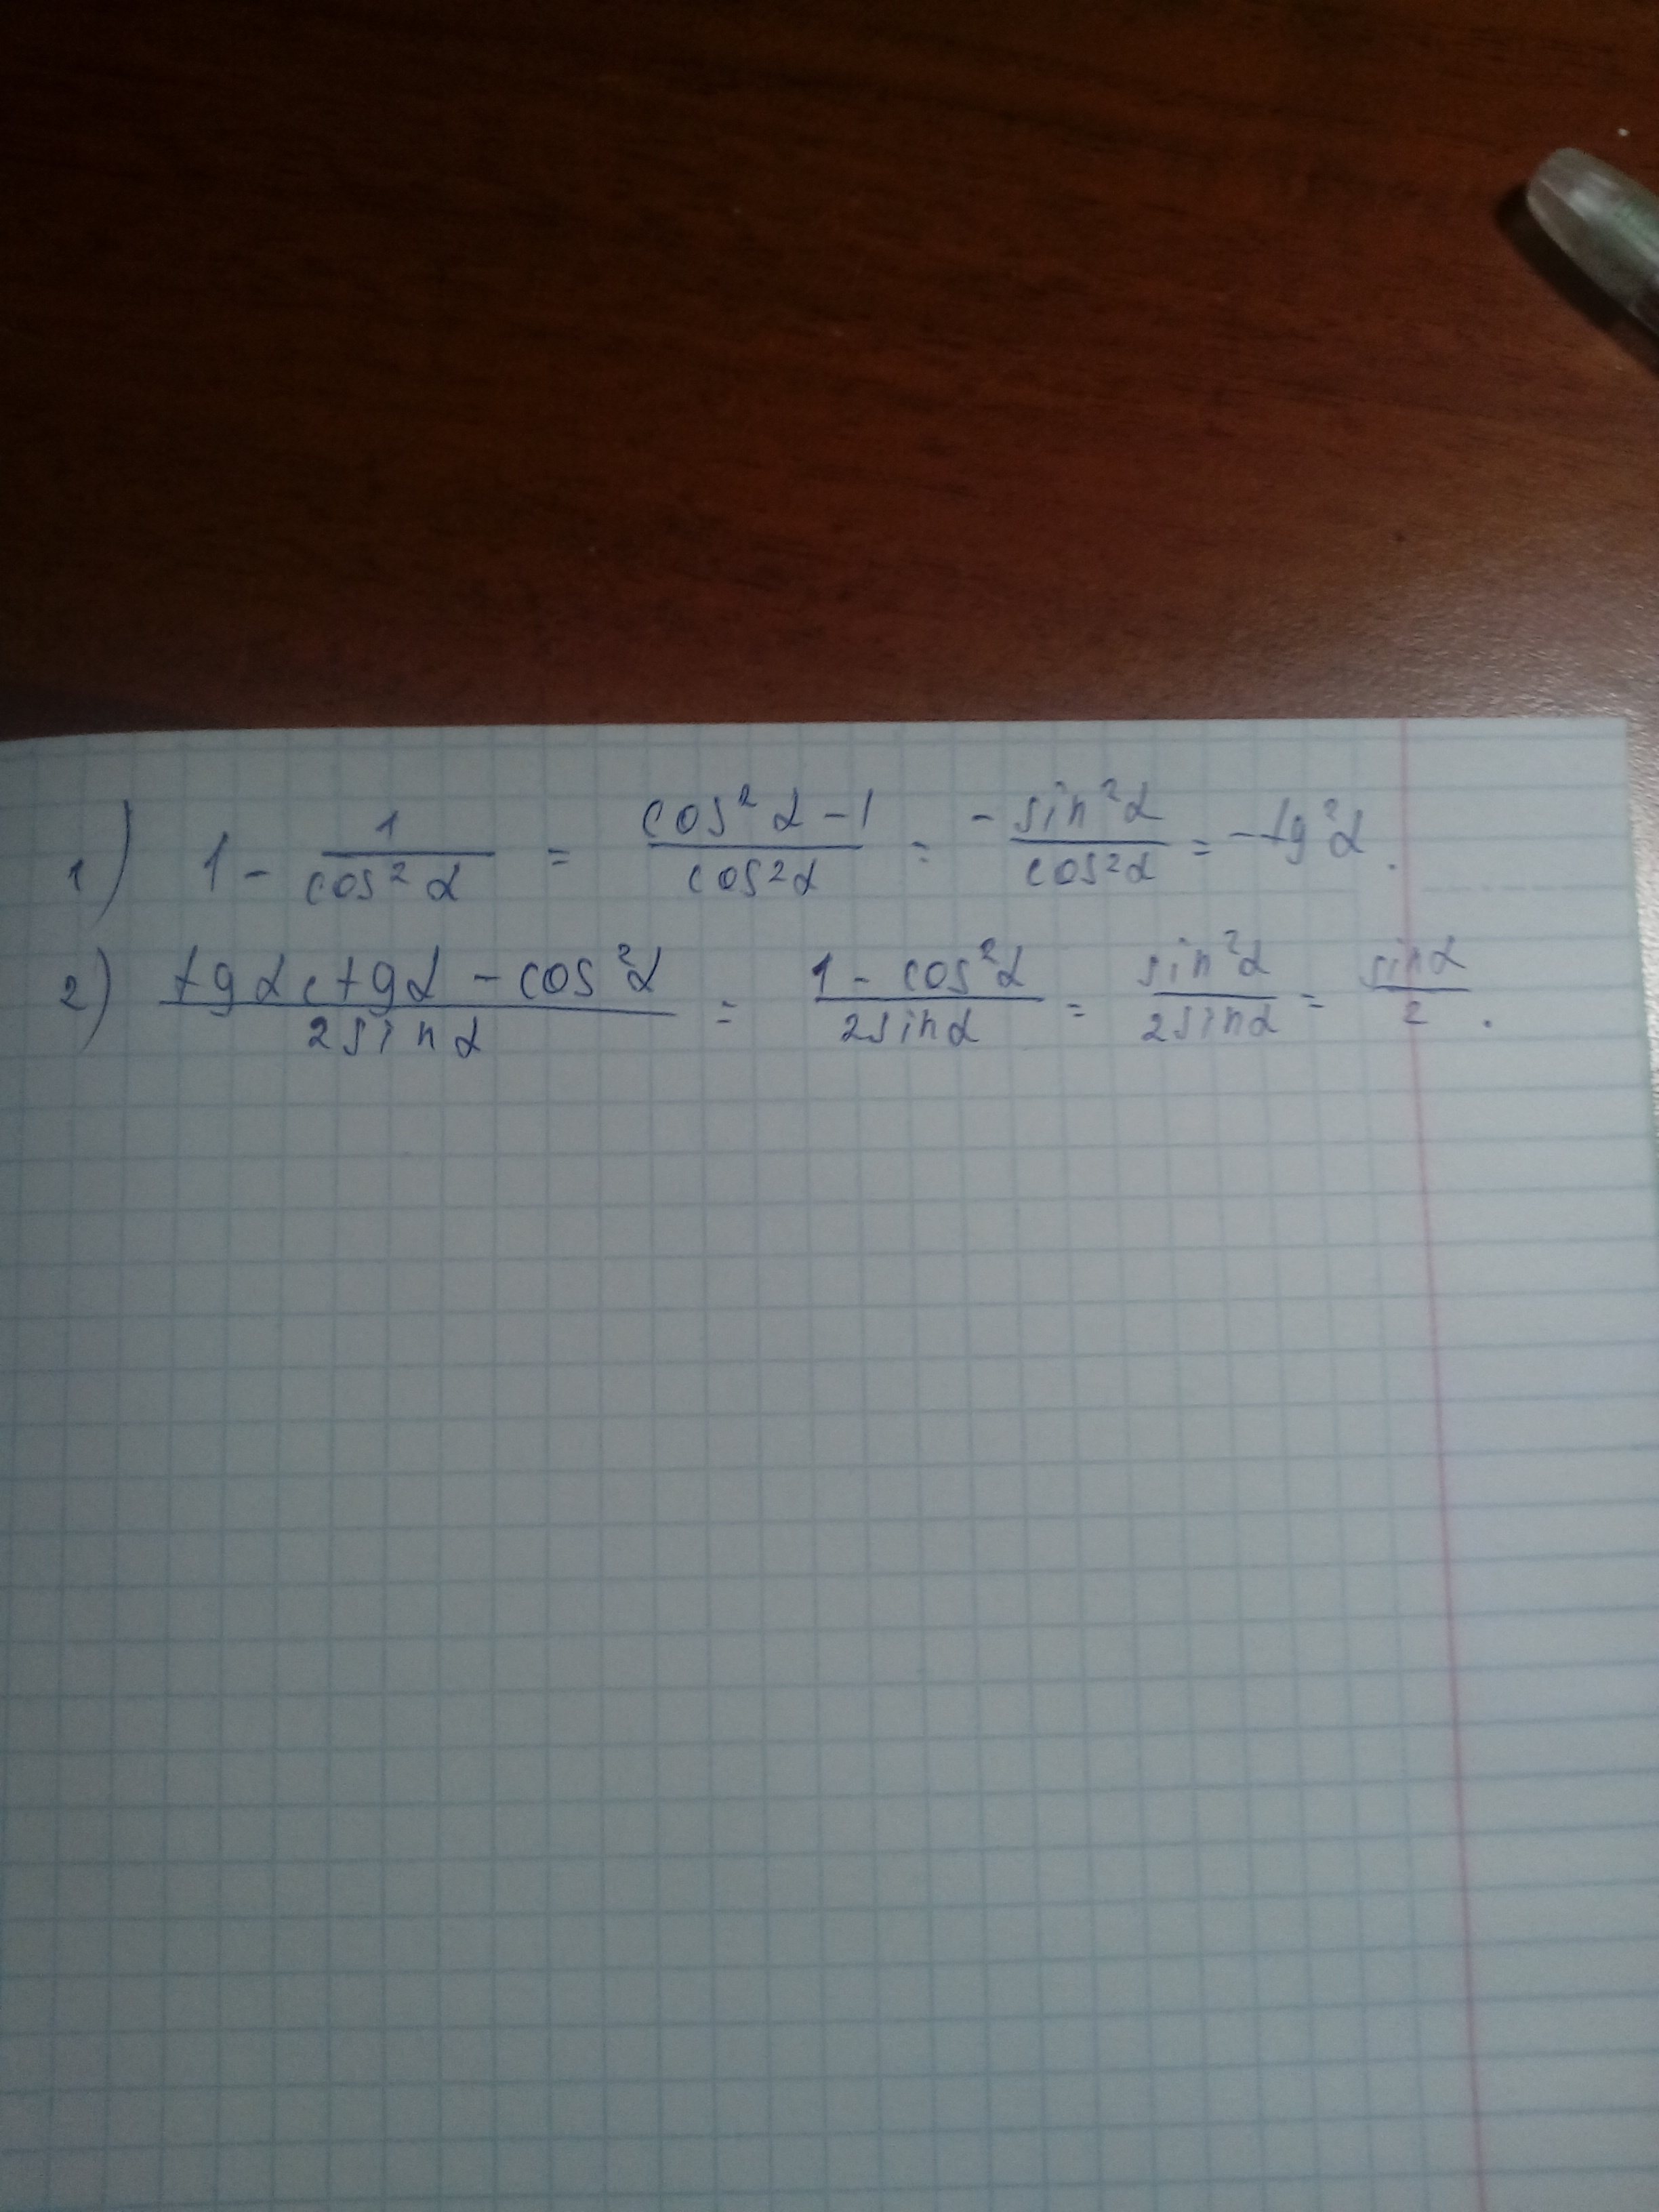 1) 1 - 1/cos²α = (cos²α - 1)/cos²α = -sin²α/cos²α = -tg²α.
2) (tgα ctgα - cos²α)/(2sinα) = (1 - cos²α)/(2sinα) = sin²α/(2sinα) = sinα/2.